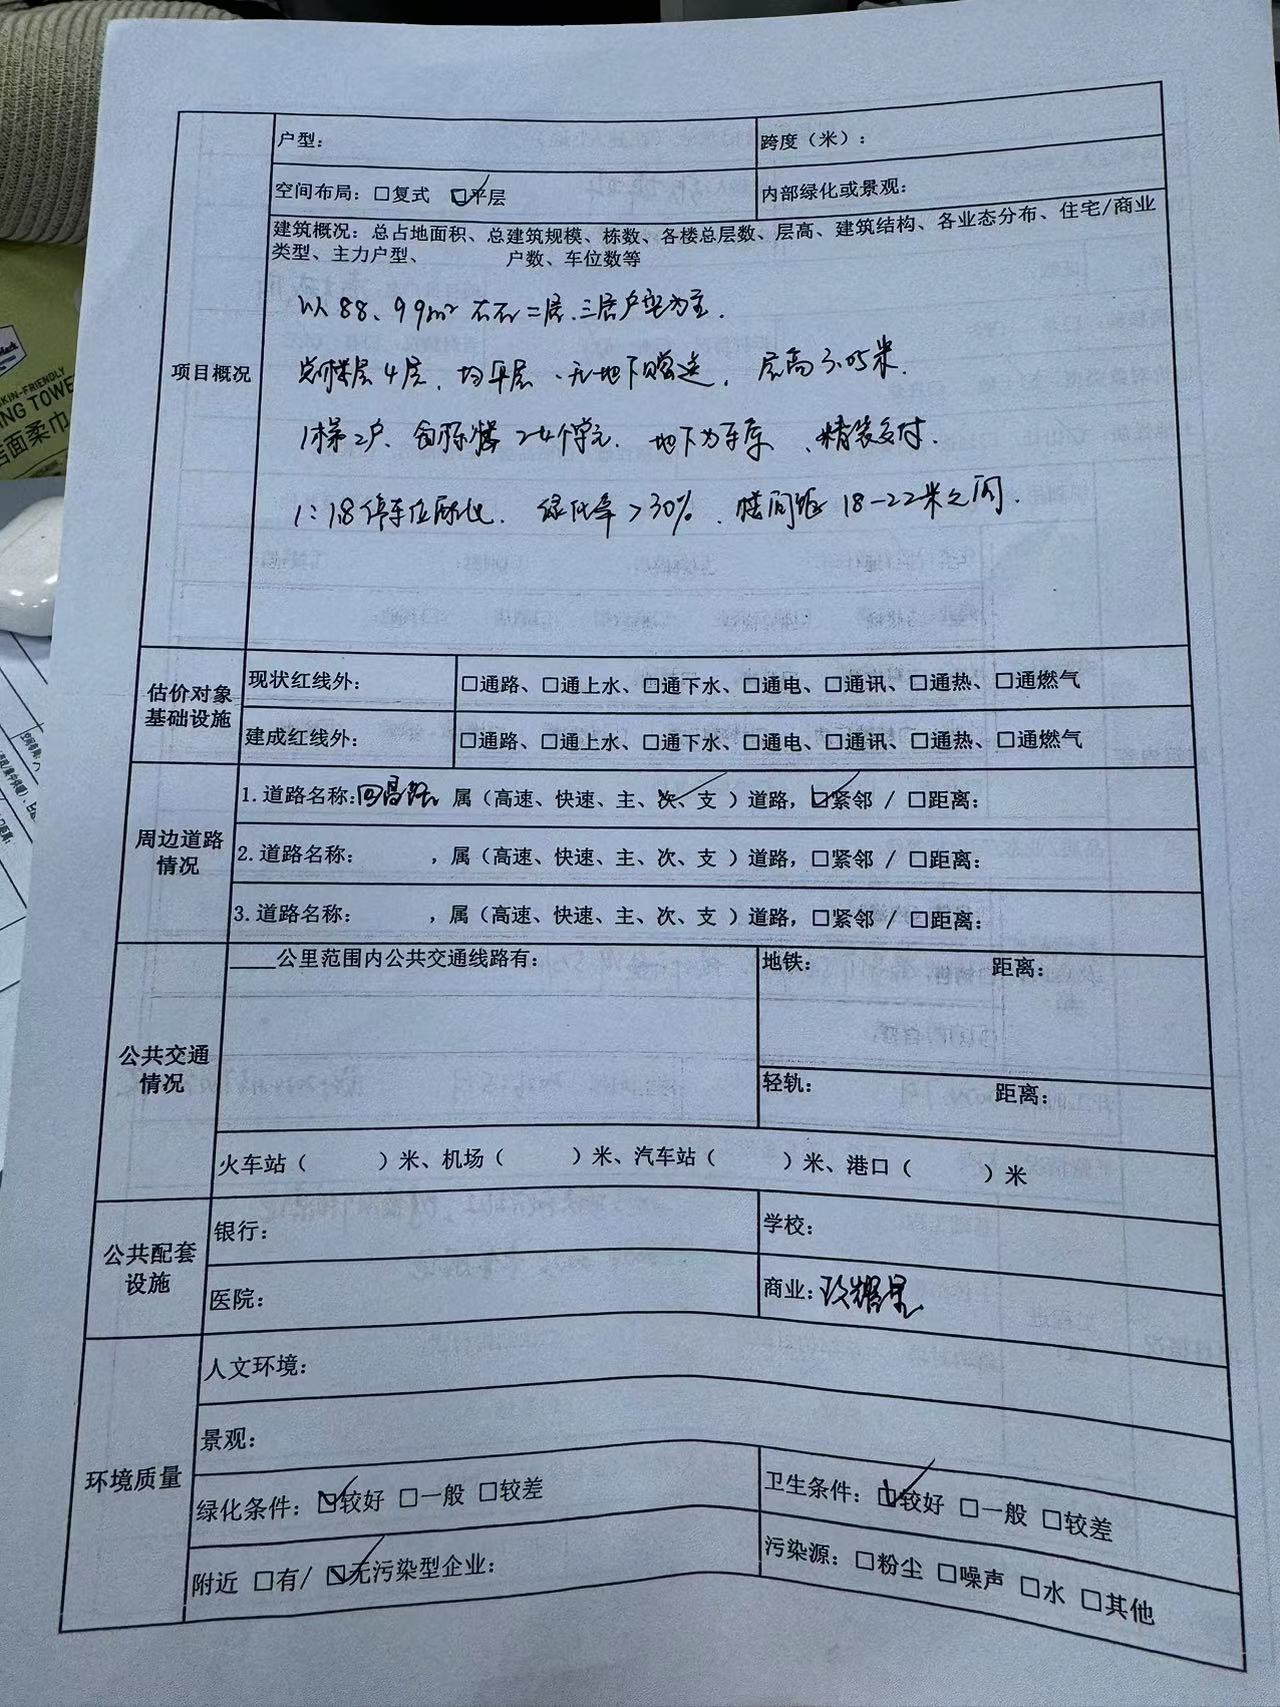 户型：
跨度（米）：
空间布局：□复式 ☑平层
内部绿化或景观：
建筑概况：总占地面积、总建筑规模、栋数、各楼总层数、层高、建筑结构、各业态分布、住宅/商业
类型、主力户型、 户数、车位数等
项目概况
以88、99m² 二层、三居户型为主.
总楼层4层, 均平层、无地下赠送, 层高3.05米.
1梯2户、 2-4个单元. 地下为车库、精装交付.
1:1.8停车位配比. 绿化率>30%、楼间距18-22米之间.
估价对象
基础设施
现状红线外：
□通路、□通上水、□通下水、□通电、□通讯、□通热、□通燃气
建成红线外：
□通路、□通上水、□通下水、□通电、□通讯、□通热、□通燃气
周边道路
情况
1.道路名称：回昌路 属（高速、快速、主、次、支 ）道路，☑紧邻 / □距离：
2.道路名称： ，属（高速、快速、主、次、支 ）道路，□紧邻 / □距离：
3.道路名称： ，属（高速、快速、主、次、支 ）道路，□紧邻 / □距离：
公共交通
情况
____公里范围内公共交通线路有：
地铁： 距离：
轻轨： 距离：
火车站（ ）米、机场（ ）米、汽车站（ ）米、港口（ ）米
公共配套
设施
银行：
学校：
医院：
商业：
环境质量
人文环境：
景观：
绿化条件：☑较好 □一般 □较差
卫生条件：☑较好 □一般 □较差
附近 □有/ ☑无污染型企业：
污染源：□粉尘 □噪声 □水 □其他
KIN-FRIENDLY
ING TOWE
洁面柔巾